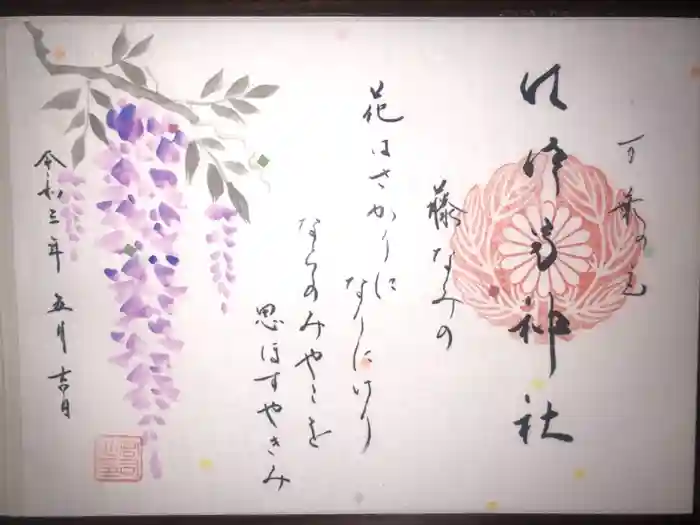 万葉の里
神社
藤なみの
花はさかりに
なりにけり
ならのみやこを
思ほすやきみ
令和三年 五月 吉日